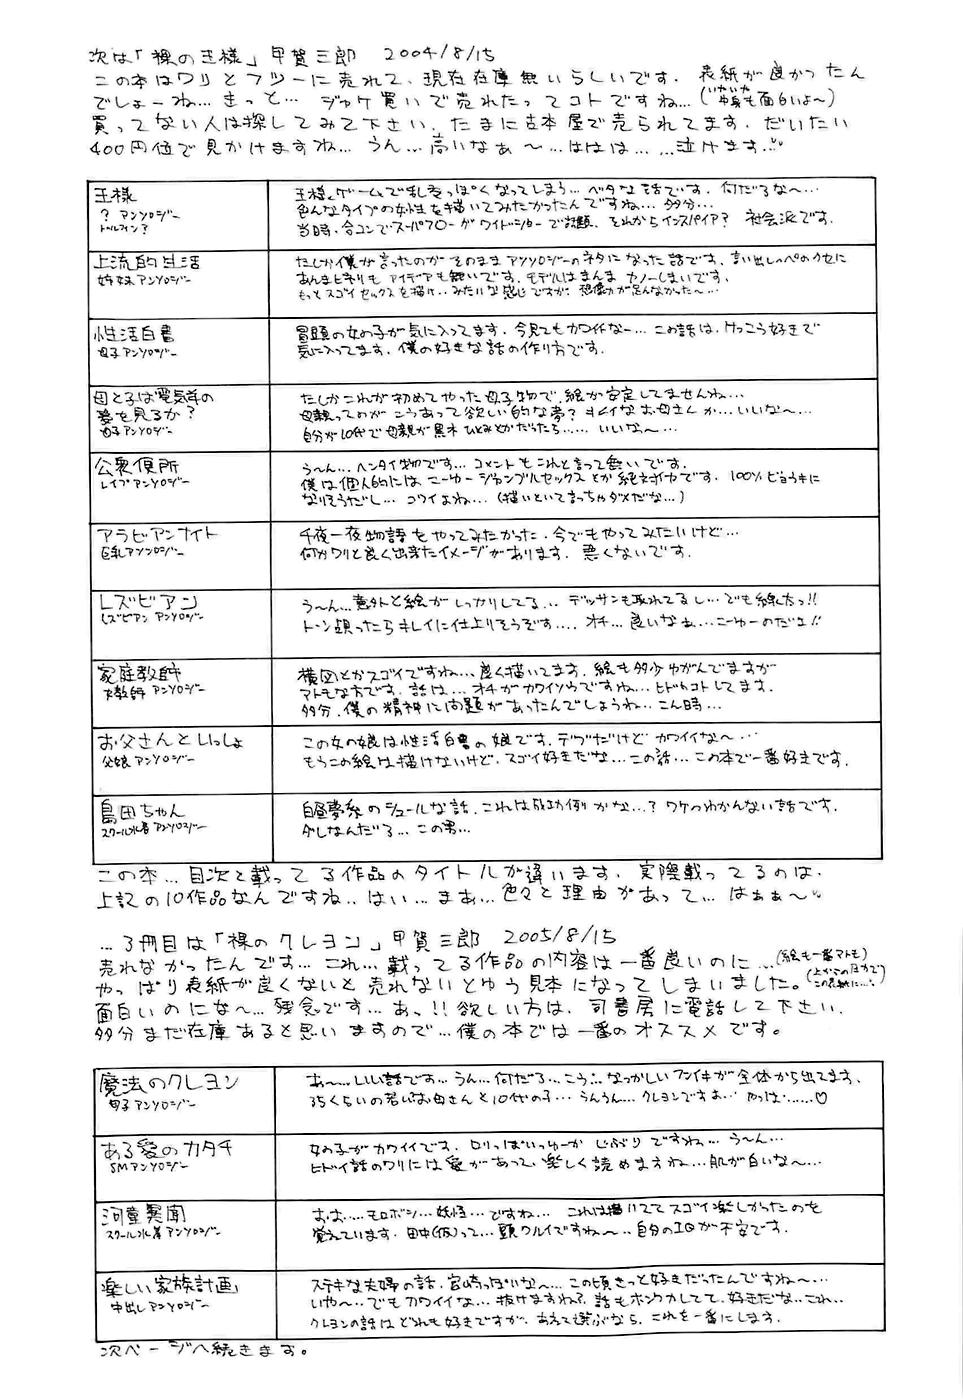 次は「裸の王様」甲賀三郎 2004/8/15
この本はワリとフツーに売れて、現在在庫無いらしいです. 表紙が良かったん
でしょーね…きっと… ジャケ買いで売れたってコトですね…(いやいや中身も面白いよ〜)
買ってない人は探してみて下さい. たまに古本屋で売られてます. だいたい
400円位で見かけますね…うん…高いなぁ〜…ははは……泣けます.
王様
? アンソロジー
王様ゲームで乱
っぽくなってしまう…ベタな話です. 何だろな〜…
色んなタイプの女性を描いてみたかったんですね… 多分…
当時、合コンでスーパフローがワイドショーで話題、それからインスパイア? 社会派です.
上流的生活
姉妹アンソロジー
たしか僕が言ったのがそのままアンソロジーのネタになった話です. 言い出しっぺのクセに
あんまヒネリもアイデアも無いです. モデルはまんまカノーしまいです.
もっとスゴイセックスを描け…みたいな感じですが… 想像力が足んなかった〜…
性活白書
母子アンソロジー
冒頭の女の子が気に入ってます. 今見てもカワイイなー… この話は、けっこう好きで
気に入ってます. 僕の好きな話の作り方です.
母と子は電気羊の
夢を見るか?
母子アンソロジー
たしかこれが初めてやった母子物で、絵が安定してませんね…
母親ってのがこうあって欲しい的な夢? キレイなお母さんか…いいな〜…
自分が10代で母親が黒木ひとみとかだったら…… いいな〜…
公衆便所
レイプアンソロジー
う〜ん… ヘンタイ物です… コメントもこれと言って無いです.
僕は個人的にはこーゆージャンブルセックスとか絶対イヤです. 100%ビョウキに
なりそうだし… コワイよね… (描いといて言っちゃダメだな…)
アラビアンナイト
巨乳アンソロジー
千夜一夜物語をやってみたかった. 今でもやってみたいけど…
何かワリと良く出来たイメージがあります. 悪くないです.
レズビアン
レズビアンアンソロジー
う〜ん…意外と絵がしっかりしてる… デッサンも取れてるし…でも線太っ!!
トーン貼ったらキレイに仕上りそうです…. オチ…良いなぁ…こーゆーのだよ!!
家庭教師
女教師アンソロジー
構図とかスゴイですね… 良く描いてます. 絵も多少ゆがんでますが
マトモな方です. 話は…オチがカワイソウですね… ヒドイコトしてます.
多分、僕の精神に問題があったんでしょうね…こん時…
お父さんといっしょ
父娘アンソロジー
この女の娘は性活白書の娘です. デブだけどカワイイな〜…
もうこの絵は描けないけど、スゴイ好きだな…この話…この本で一番好きです.
島田ちゃん
スクール水着アンソロジー
白昼夢系のシュールな話. これは成功例かな…? ワケのわかんない話です.
ダレなんだろ… この男…
この本…目次と載ってる作品のタイトルが違います. 実際載ってるのは、
上記の10作品なんですね…はい…まぁ…色々と理由があって…はぁぁ〜
…3冊目は「裸のクレヨン」甲賀三郎 2005/8/15
売れなかったんです… これ… 載ってる作品の内容は一番良いのに…(絵も一番マトモ)
やっぱり表紙が良くないと売れないとゆう見本になってしまいました。
面白いのにな〜… 残念です… あっ!! 欲しい方は、司書房に電話して下さい.
多分まだ在庫あると思いますので…僕の本では一番のオススメです。
魔法のクレヨン
母子アンソロジー
あ〜…いい話です…うん…何だろ…こう…なつかしいフンイキが全体から出てます.
35くらいの若いお母さんと10代の子…うんうん…クレヨンですよ… やっぱ……♡
ある愛のカタチ
SMアンソロジー
女の子がカワイイです. ロリっぽいっゆーか じぶり ですね… う〜ん…
ヒドイ話のワリには愛があって、楽しく読めますね…肌が白いな〜…
河童異聞
スクール水着アンソロジー
おぉ… モロボシ…妖怪…ですね… これは描いててスゴイ楽しかったのを
覚えています. 田中(仮)って… 頭ワルイですね〜… 自分のIQが不安です.
楽しい家族計画
中出しアンソロジー
ステキな夫婦の話. 宮崎っぽいな〜… この頃きっと好きだったんですね〜…
いや〜…でもカワイイな… 抜けますね?. 話もホンワカしてて、好きだな…これ…
クレヨンの話はどれも好きですが、あえて選ぶなら、これを一番にします.
次ページへ続きます。